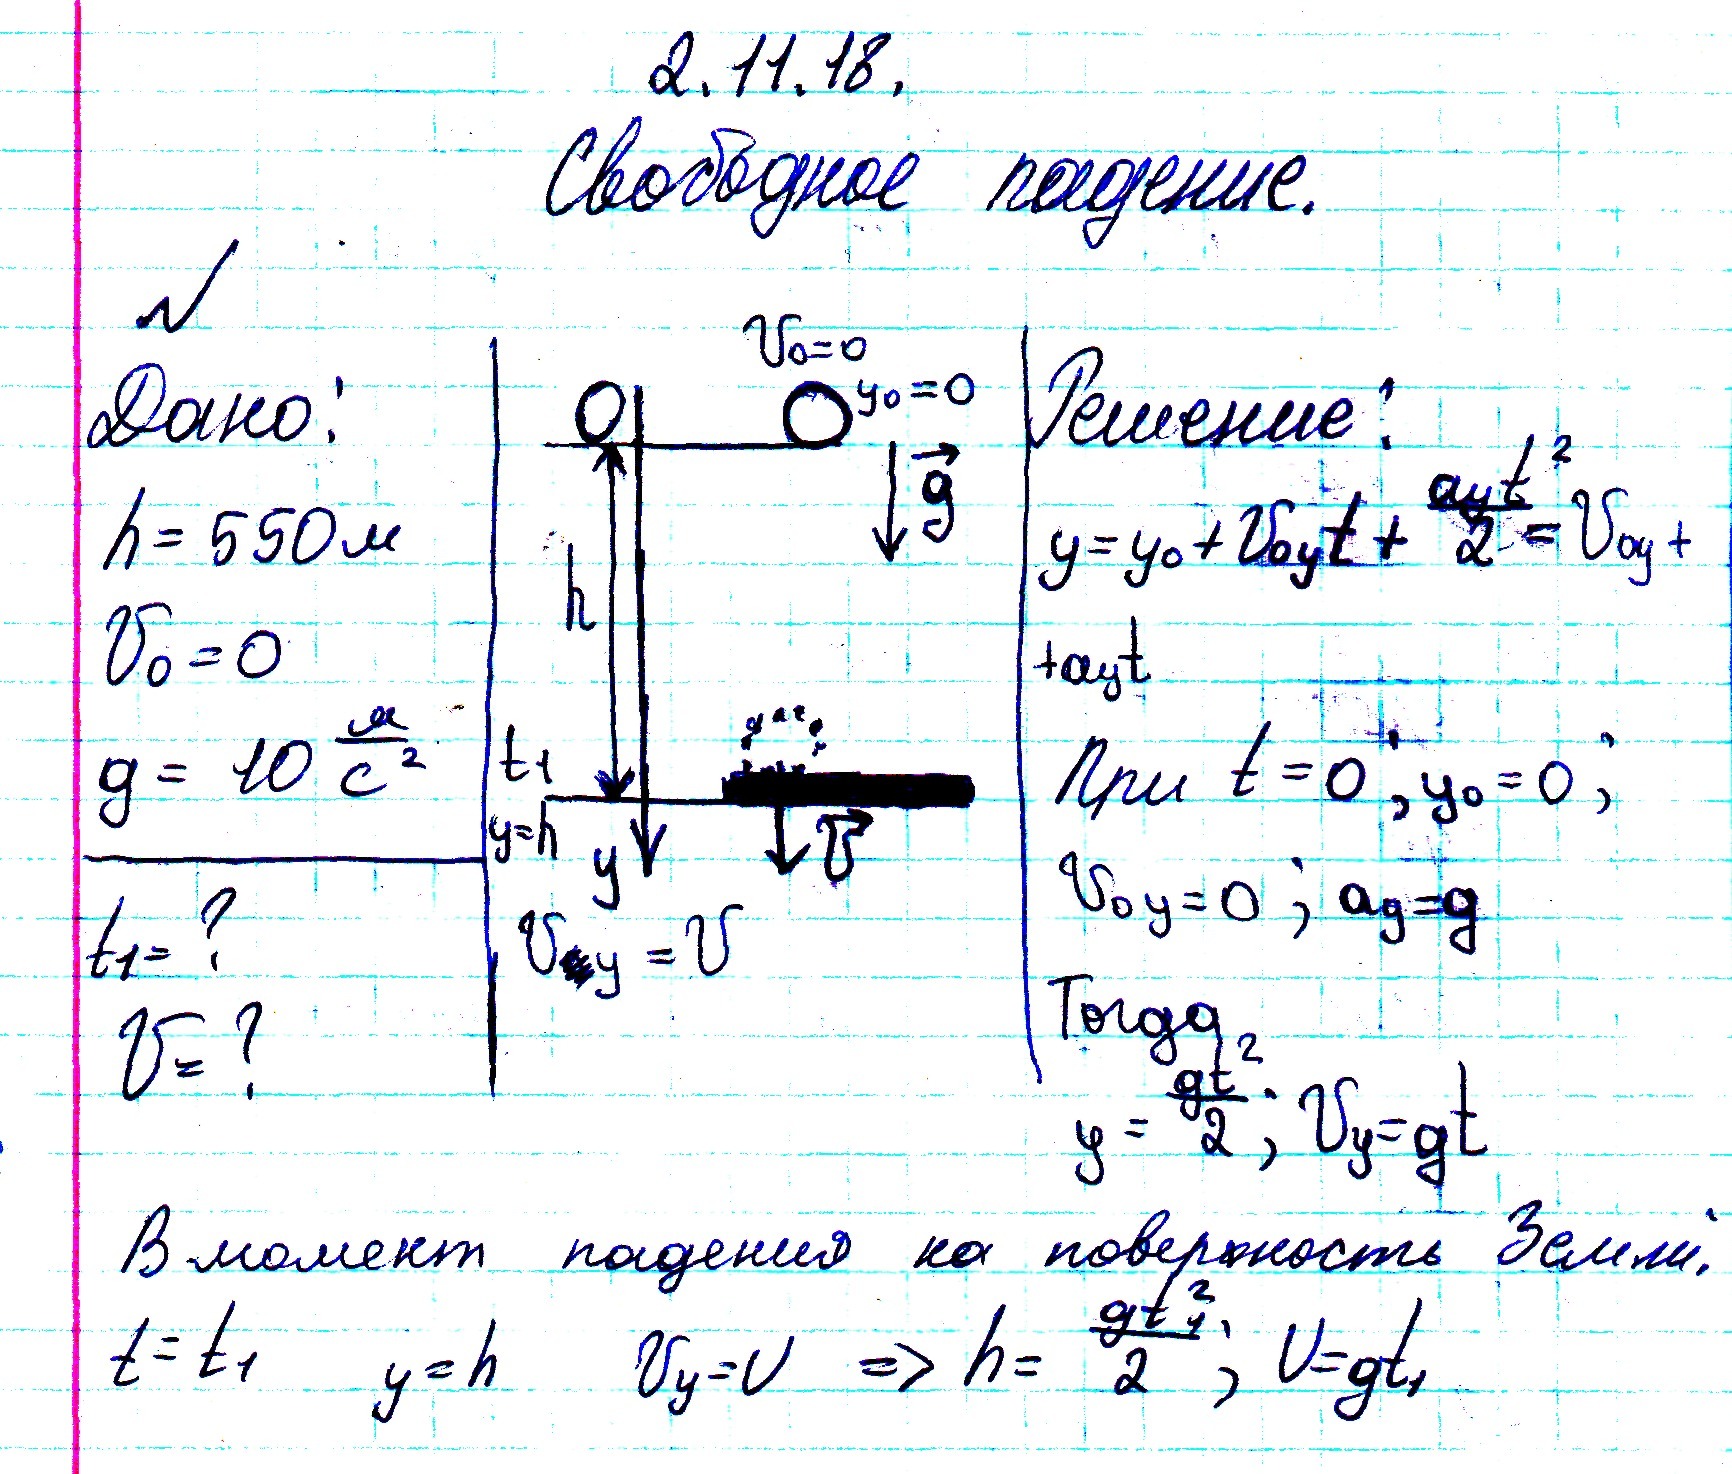 2.11.18.
Свободное падение.
√
Дано:
h = 550м
V₀ = 0
g = 10 м/с²
t₁ = ?
V = ?
V₀=0
y₀ = 0
g
h
t₁
y=h
y
V
Vy = V
Решение:
y = y₀ + V₀yt + ayt²/2 = V₀y +
+ayt
При t = 0 ; y₀ = 0 ;
V₀y = 0 ; ay = g
Тогда
y = gt²/2 ; Vy = gt
В момент падения на поверхность Земли:
t = t₁ y = h Vy = V => h = gt₁²/2 ; V = gt₁